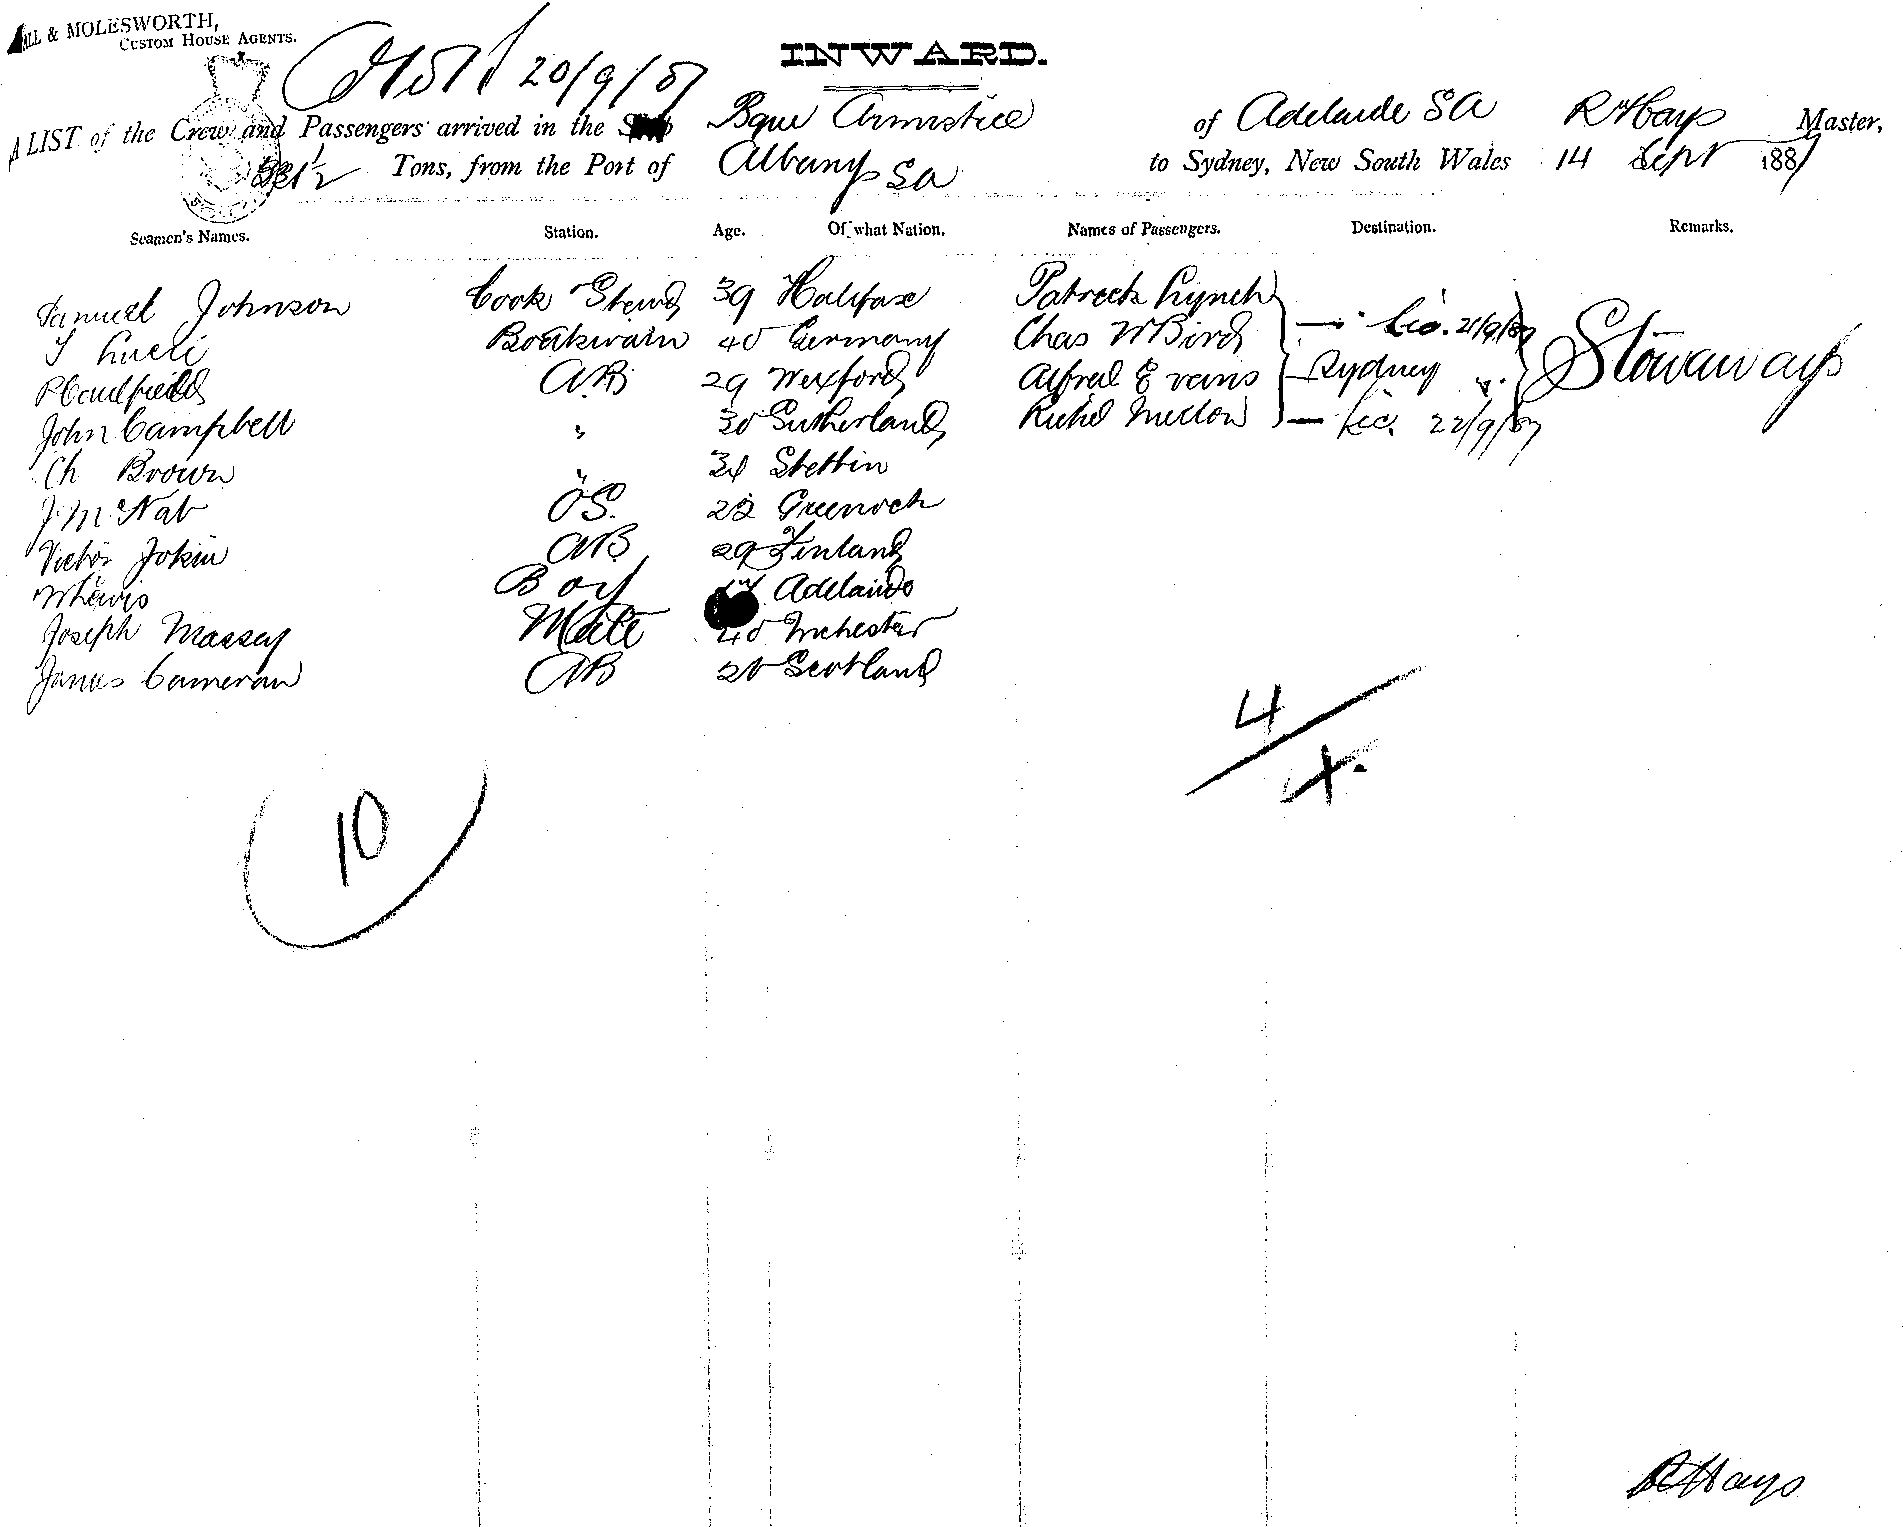 ALL & MOLESWORTH,
CUSTOM HOUSE AGENTS.
20/9/87
INWARD.
A LIST of the Crew and Passengers arrived in the Bque Armistice of Adelaide SA R Hays Master,
Tons, from the Port of Albany SA to Sydney, New South Wales 14 Sept 1887
Seamen's Names. Station. Age. Of what Nation. Names of Passengers. Destination. Remarks.
Samuel Johnson Cook Stewd 39 Halifax Patrick Lynch
Boatswain 40 Germany Chas W Bird 21/9/87
P Caulfield AB 29 Wexford Alfred Evans Sydney Stowaways
John Campbell " 30 Sutherland Richd 22/9/87
Ch Brown " Stettin
J McNab OS. Greenock
Victor AB 29 Finland
W Lewis Boy Adelaide
Joseph Massey Mate 40
James Cameron AB Scotland
4
4.
10
R Hays